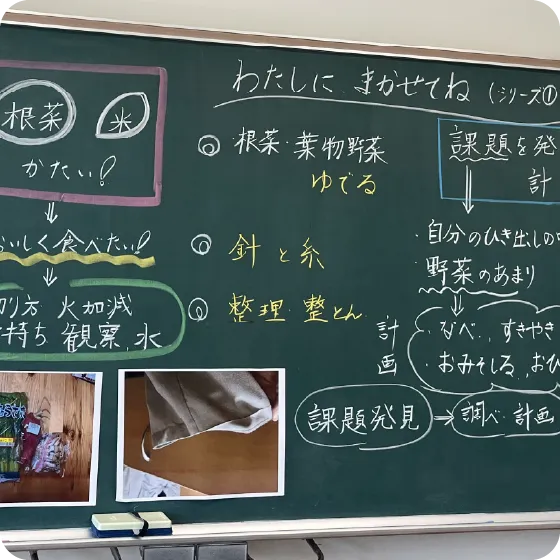 根菜 米
かたい!
おいしく食べたい!
切り方 火加減
気持ち 観察 氷
わたしに まかせてね(シリーズ①
◎ ・根菜・葉物野菜
ゆでる
◎ 針と糸
◎ 整理・整とん
課題を発
計
・自分のひき出しの中
・野菜のあまり
計画
・なべ、すきやき
・おみそしる、おひ
課題発見 → 調べ 計画